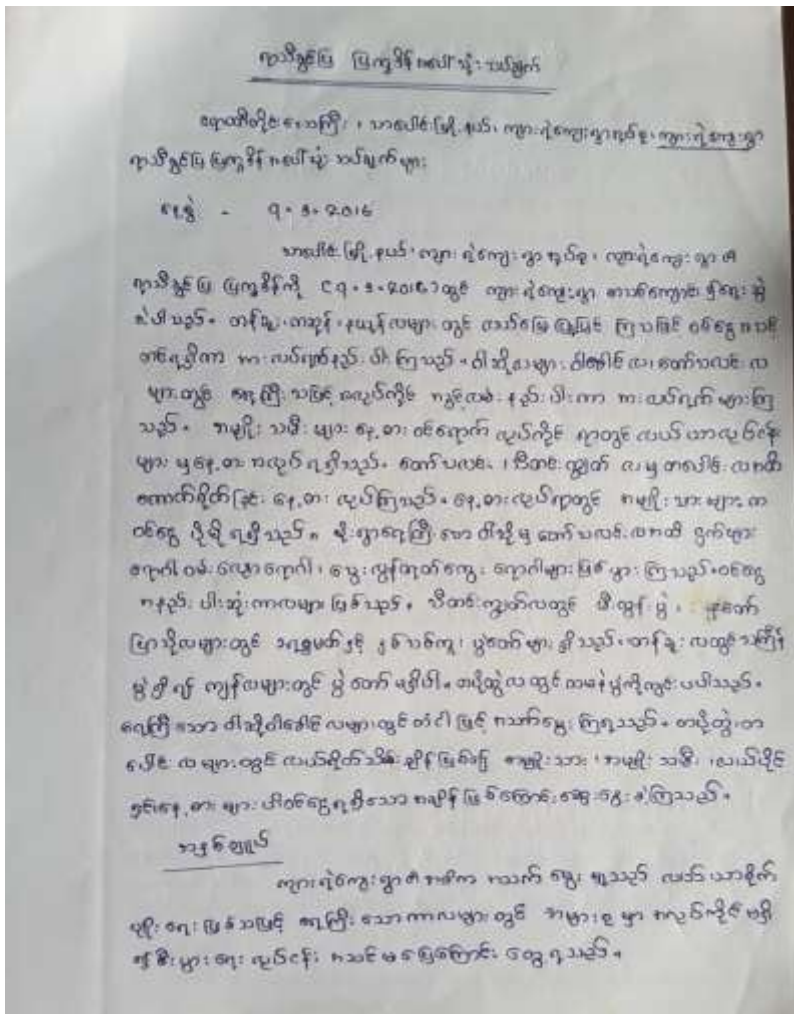 ရာသီခွင်ပြ ပြက္ခဒိန်အပေါ်သုံးသပ်ချက်
ဧရာဝတီတိုင်းဒေသကြီး ၊ သာပေါင်းမြို့နယ်၊ ကျားရဲကျေးရွာအုပ်စု ၊ ကျားရဲကျေးရွာ
ရာသီခွင်ပြ ပြက္ခဒိန်အပေါ်သုံးသပ်ချက်များ
နေ့စွဲ - ၇.၁.၂၀၁၆
သာပေါင်းမြို့နယ်၊ ကျားရဲကျေးရွာအုပ်စု ၊ ကျားရဲကျေးရွာ၏
ရာသီခွင်ပြ ပြက္ခဒိန်ကို (၇.၁.၂၀၁၆) တွင် ကျားရဲကျေးရွာ စာသင်ကျောင်း၌ ရေးဆွဲ
ခဲ့ပါသည်။ တန်ခူး၊ ကဆုန်၊ နယုန်လများတွင် လယ်မြေပြုပြင်ကြသဖြင့် ဝင်ငွေအသင့်
အတင့်ရရှိကာ အားလပ်ရက်နည်းပါးကြသည်။ ဝါဆိုလများ၊ ဝါခေါင်လ၊ တော်သလင်းလ
များတွင် ရေကြီးသဖြင့် အလုပ်ကိုင် အခွင့်လမ်းနည်းပါးကာ အားလပ်ရက်များကြ
သည်။ အမျိုးသမီးများ နေ့စားဝင်ရောက်လုပ်ကိုင်ရာတွင် လယ်ယာလုပ်ငန်း
များမှ နေ့စားအလုပ်ရရှိသည်။ တော်သလင်း၊ သီတင်းကျွတ်လမှ တပေါင်းလအထိ
ကောက်စိုက်ခြင်း နေ့စားလုပ်ကြသည်။ နေ့စားလုပ်ရာတွင် အမျိုးသားများက
ဝင်ငွေပိုမိုရရှိသည်။ မိုးရွာရေကြီးသော ဝါဆိုမှ တော်သလင်းလအထိ ငှက်ဖျား
ရောဂါ ဝမ်းလျှောရောဂါ၊ သွေးလွန်တုတ်ကွေးရောဂါများ ဖြစ်ပွားကြသည်။ ဝင်ငွေ
အနည်းပါးဆုံးကာလများဖြစ်သည်။ သီတင်းကျွတ်လတွင် မီးထွန်းပွဲ ၊ နတ်တော်
ပြာသိုလများတွင် ခရစ္စမတ်နှင့် နှစ်သစ်ကူးပွဲတော်များရှိသည်။ တန်ခူးလတွင် သင်္ကြန်
ပွဲရှိ၍ ကျန်လများတွင် ပွဲတော်မရှိပါ။ တပို့တွဲလတွင် ထမနဲပွဲကိုကျင်းပပါသည်။
ရေကြီးသော ဝါဆိုဝါခေါင်လများတွင် တံငါဖြင့် အသက်မွေးကြရသည်။ တပို့တွဲ၊ တ
ပေါင်းလများတွင် လယ်စိုက်သိမ်းချိန်ဖြစ်၍ အမျိုးသား၊ အမျိုးသမီး၊ လယ်ပိုင်
ရှင်၊ နေ့စားများပါ ဝင်ငွေရရှိသောအချိန်ဖြစ်ကြောင်း ဆွေးနွေးခဲ့ကြသည်။
အနှစ်ချုပ်
ကျားရဲကျေးရွာ၏ အဓိကအသက်မွေးမှုသည် လယ်ယာစိုက်
ပျိုးရေးဖြစ်သဖြင့် ရေကြီးသောကာလများတွင် အများစုမှာ အလုပ်ကိုင်မရှိ
၍ စီးပွားရေးလုပ်ငန်းအဆင်မပြေကြောင်း တွေ့ရသည်။